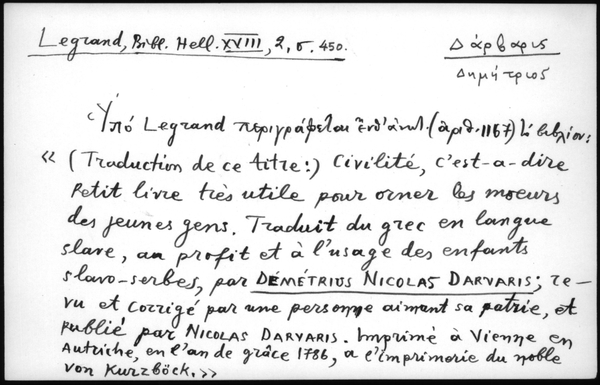 Legrand, Bibl. Hell. XVIII, 2, σ. 450.
Δάρβαρις
Δημήτριος
Ὑπό Legrand περιγράφεται (ἀριθ. 1167) βιβλίον:
« (Traduction de ce titre:) Civilité, c'est-a-dire
Petit livre très utile pour orner les moeurs
des jeunes gens. Traduit du grec en langue
slave, au profit et à l'usage des enfants
slavo-serbes, par DÉMÉTRIUS NICOLAS DARVARIS; re-
vu et corrigé par une personne aimant sa patrie, et
publié par NICOLAS DARVARIS. Imprimé à Vienne en
Autriche, en l'an de grâce 1786, a l'imprimerie du noble
von Kurzböck.»